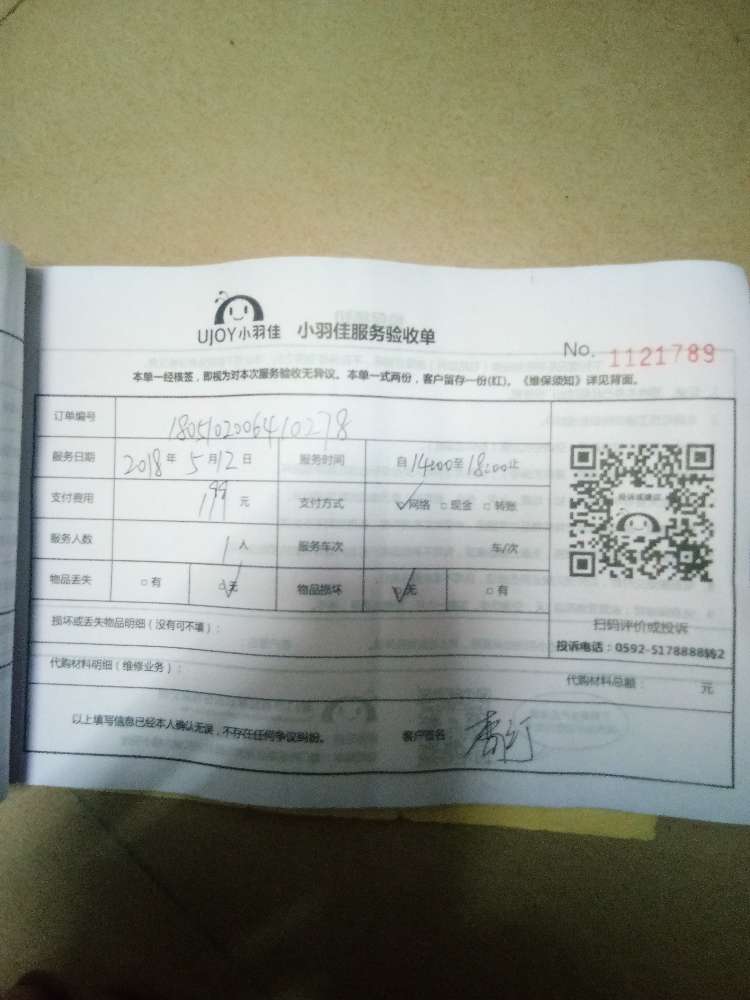 UJOY小羽佳 小羽佳服务验收单
No. 1121789
本单一经核签，即视为对本次服务验收无异议。本单一式两份，客户留存一份(红)。《维保须知》详见背面。
订单编号 1805102006410278
服务日期 2018年 5月12日 服务时间 自14:00至18:00止
支付费用 199元 支付方式 ☑网络 □现金 □转账
投诉或建议
服务人数 1人 服务车次 车/次
物品丢失 □有 ☑无 物品损坏 ☑无 □有
扫码评价或投诉
损坏或丢失物品明细（没有可不填）：
投诉电话：0592-5178888转2
代购材料明细（维修业务）：
代购材料总额： 元
以上填写信息已经本人确认无误，不存在任何争议纠纷。 客户签名：